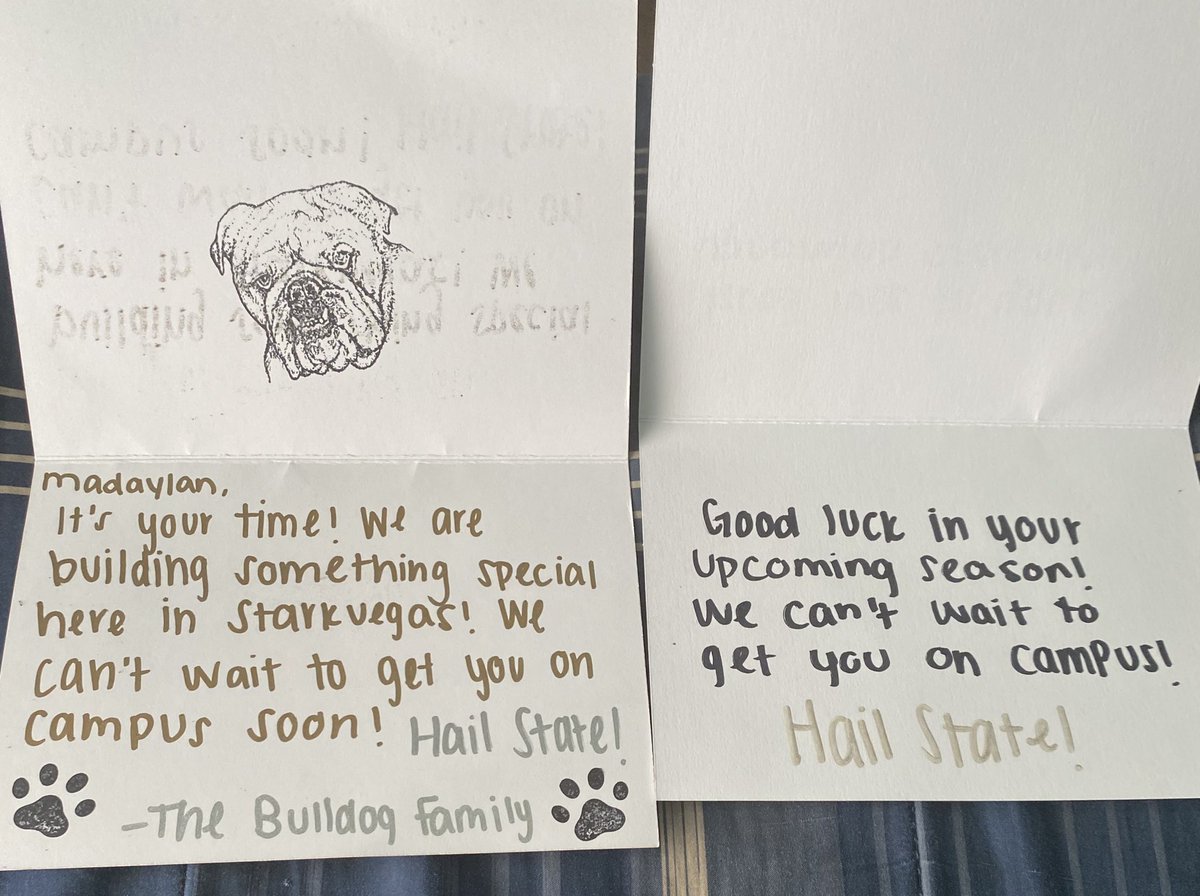 madaylan,
It's your time! We are
building something special
here in Starkvegas! We
can't wait to get you on
campus soon! Hail State!
-The Bulldog Family
Good luck in your
upcoming season!
We can't wait to
get you on campus!
Hail State!